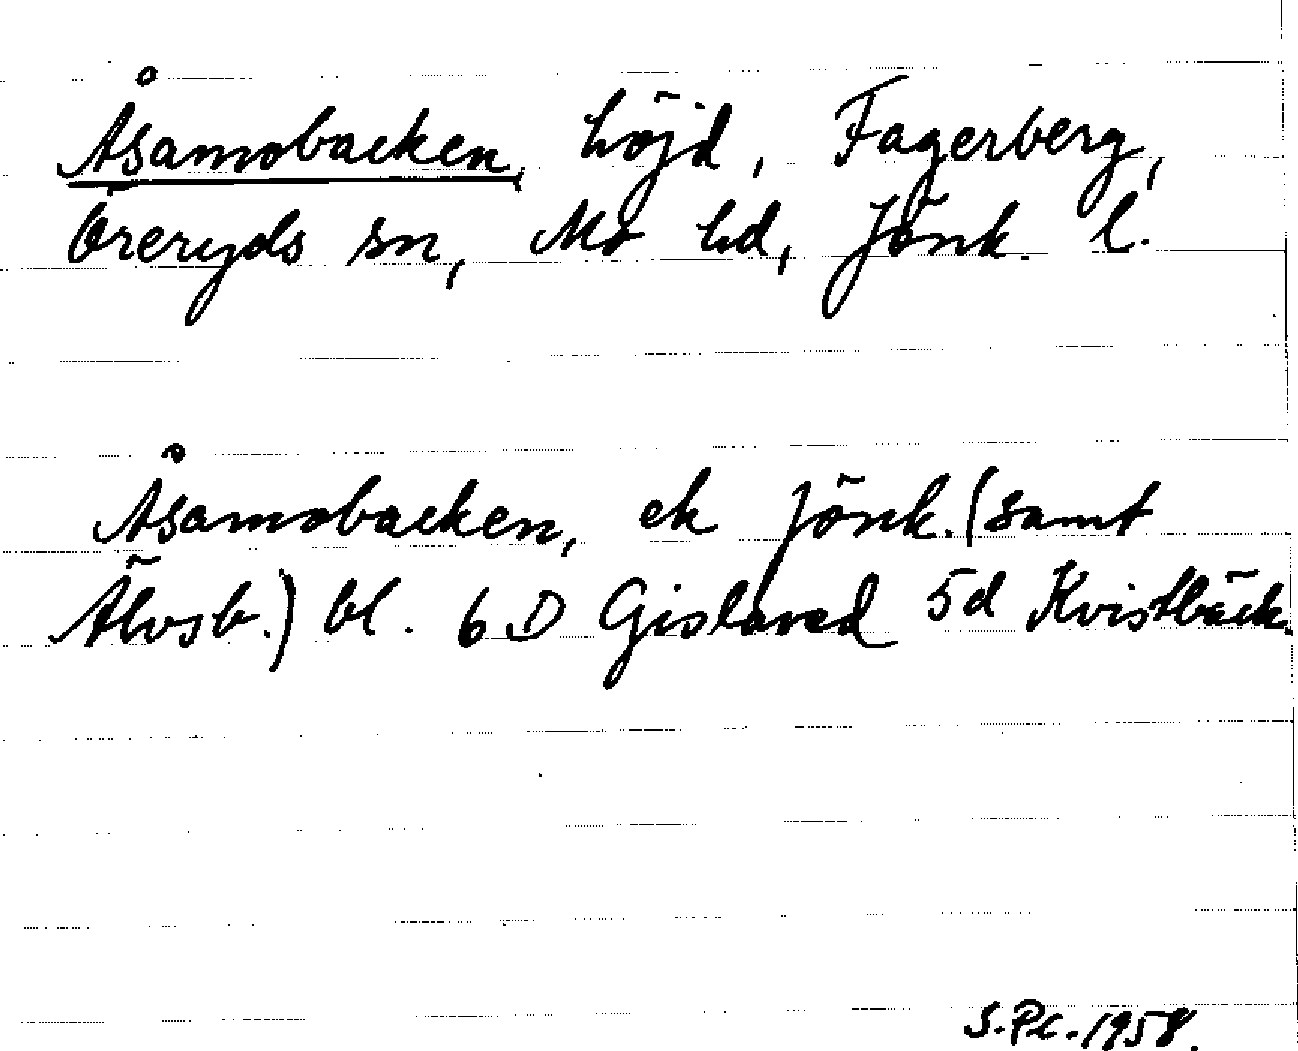 Åsamobacken, höjd, Fagerberg,
Öreryds sn, Mo hd, Jönk. l.
Åsamobacken, ek Jönk. (samt
Älvsb.) bl. 6 D Gislaved 5d Kvistbäck.
S.P.C. 1958.